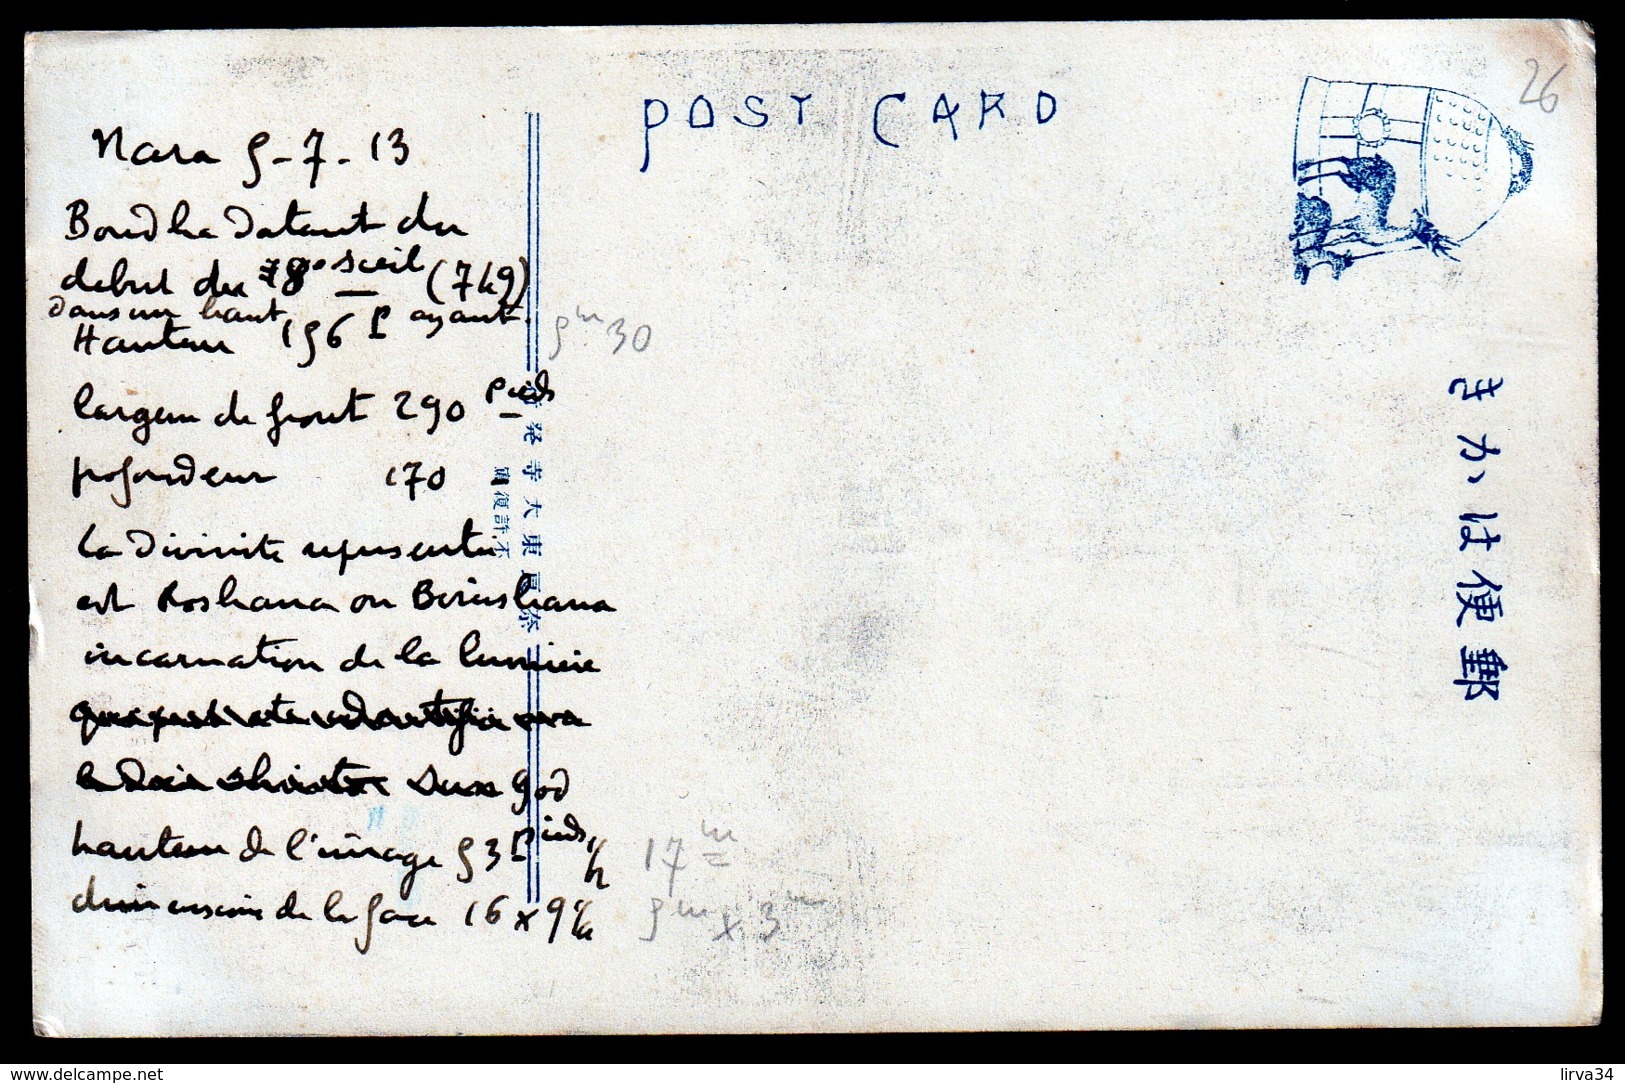 POST CARD
26
Nara 5-7-13
Boudha Datant du
debut du 8e sieil (749)
Dans un haut ayant
Hauteur 156 P
5m 30
largeur de front 290 pieds
profondeur 170
La Divinité representée
est Roshana ou Birushana
incarnation de la lumiere
God
hauteur de l'image 53 pieds 1/2
17m
dimension de la face 16 x 9 1/2
5m x 3m
きかは便郵
奈良東大寺発行
不許複製
www.delcampe.net
lirva34